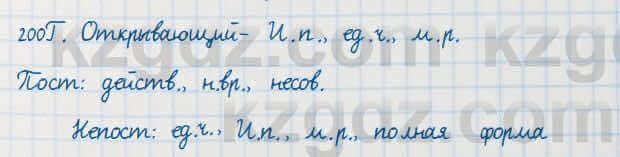 200Г. Открывающий- И.п., ед.ч., м.р.
Пост: действ., н.вр., несов.
Непост: ед.ч., И.п., м.р., полная форма
kzgdz.com